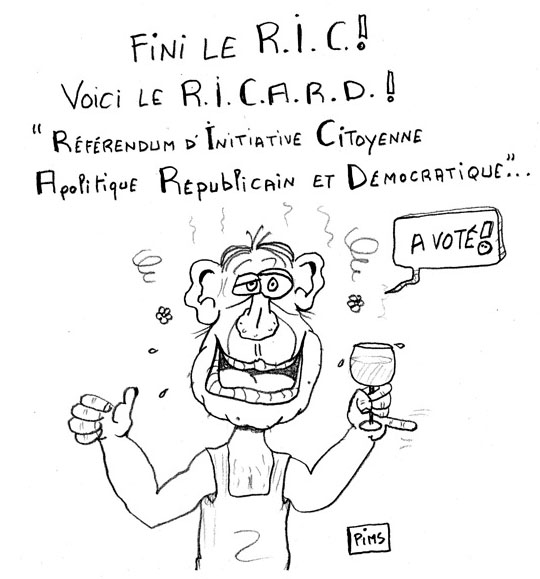 FINI LE R.I.C.!
VOICI LE R.I.C.A.R.D.!
"RÉFÉRENDUM D'INITIATIVE CITOYENNE
APOLITIQUE RÉPUBLICAIN ET DÉMOCRATIQUE"...
A VOTÉ!
PIMS